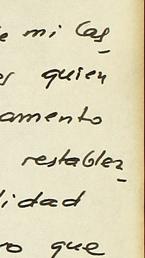 e mi Cas
es quien
amento
restablez
lidad
vo que